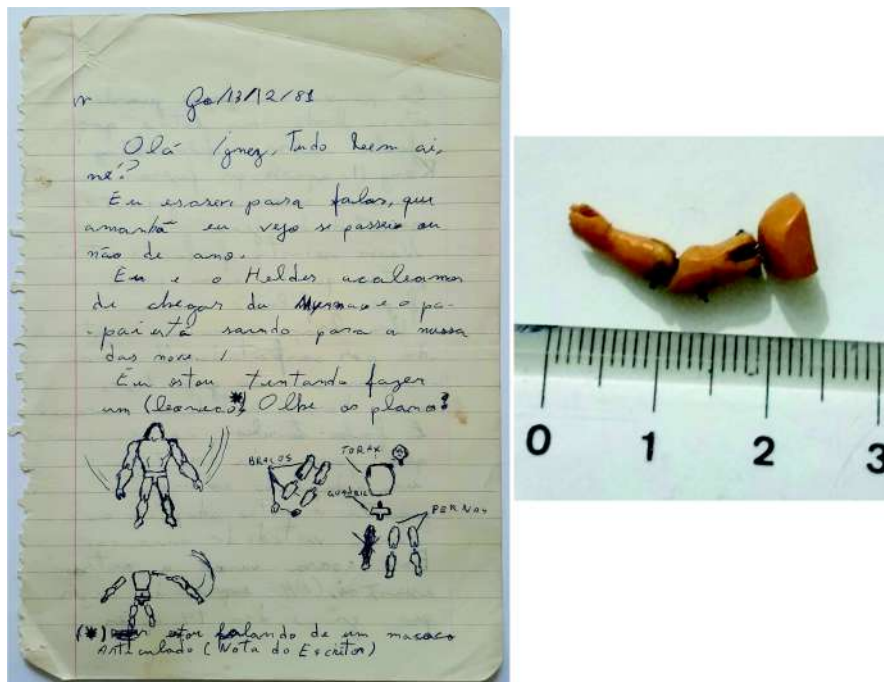 Go/13/12/81
Olá Ignez, Tudo beem ai,
né?
Eu escrevi para falar, que
amanhã eu vejo se passei ou
não de ano.
Eu e o Helder acabamos
de chegar da e o pa-
-pai está saindo para a missa
das nove.
Eu estou tentando fazer
um (boneco*) Olhe os planos:
BRAÇOS
TORAX
QUADRIL
PERNAS
(*) estou falando de um macaco
Articulado (Nota do Escritor)
0 1 2 3